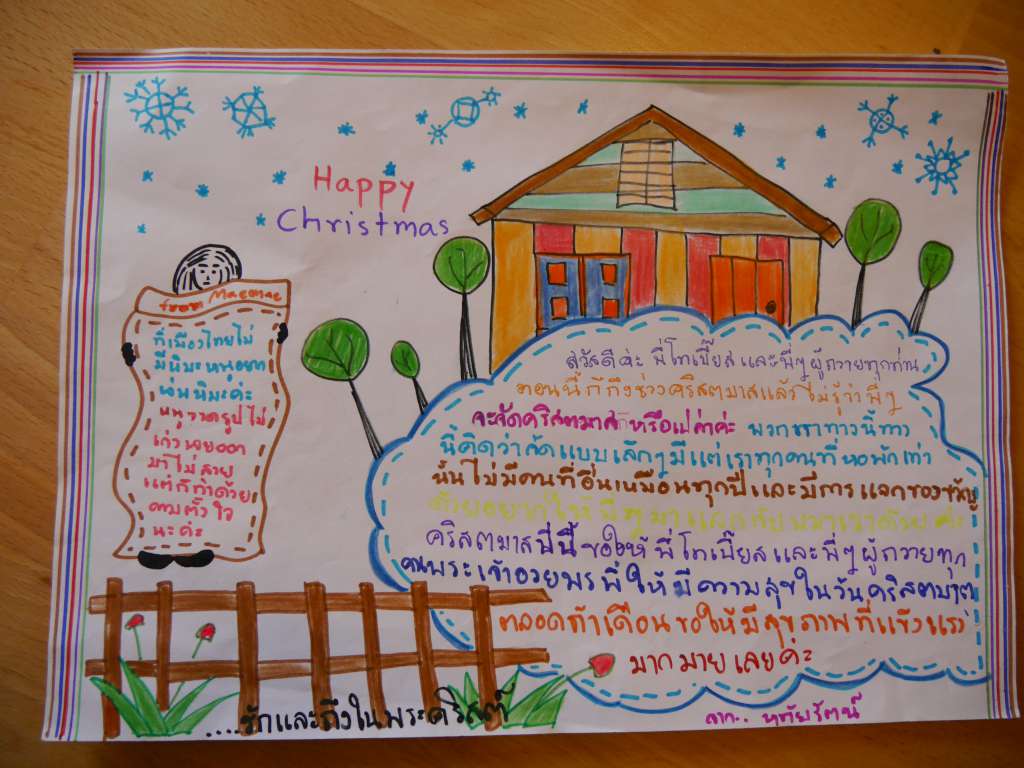 Happy
Christmas
from Maemae
ที่เมืองไทยไม่
มีหิมะ หนูอยาก
เห็นหิมะค่ะ
หนูวาดรูปไม่
เก่ง
มาไม่สวย
แต่ก็ทำด้วย
ความตั้งใจ
นะค่ะ
สวัสดีค่ะ พี่โทเบี๊ยส และพี่ๆผู้ถวายทุกท่าน
ตอนนี้ก็ถึงช่วงคริสตมาสแล้ว ไม่รู้ว่าพี่ๆ
จะจัดคริสตมาสกันหรือเปล่าค่ะ พวกเราทางนี้ทาง
นี้คิดว่าจัดแบบเล็กๆ มีแต่เราทุกคนที่หอพักเท่า
นั้นไม่มีคนที่อื่นเหมือนทุกปี และมีการแจกของขวัญ
ด้วยอยากให้พี่ๆมาแลกกับพวกเราด้วย ค่ะ
คริสตมาสปีนี้ขอให้พี่โทเบี๊ยส และพี่ๆผู้ถวายทุก
คนพระเจ้าอวยพรพี่ให้มีความสุขในวันคริสตมาส
ตลอดทั้งเดือนขอให้มีสุขภาพที่แข็งแรง
มากมายเลยค่ะ
....รักและถึงในพระคริสต์
จาก.. หทัยรัตน์